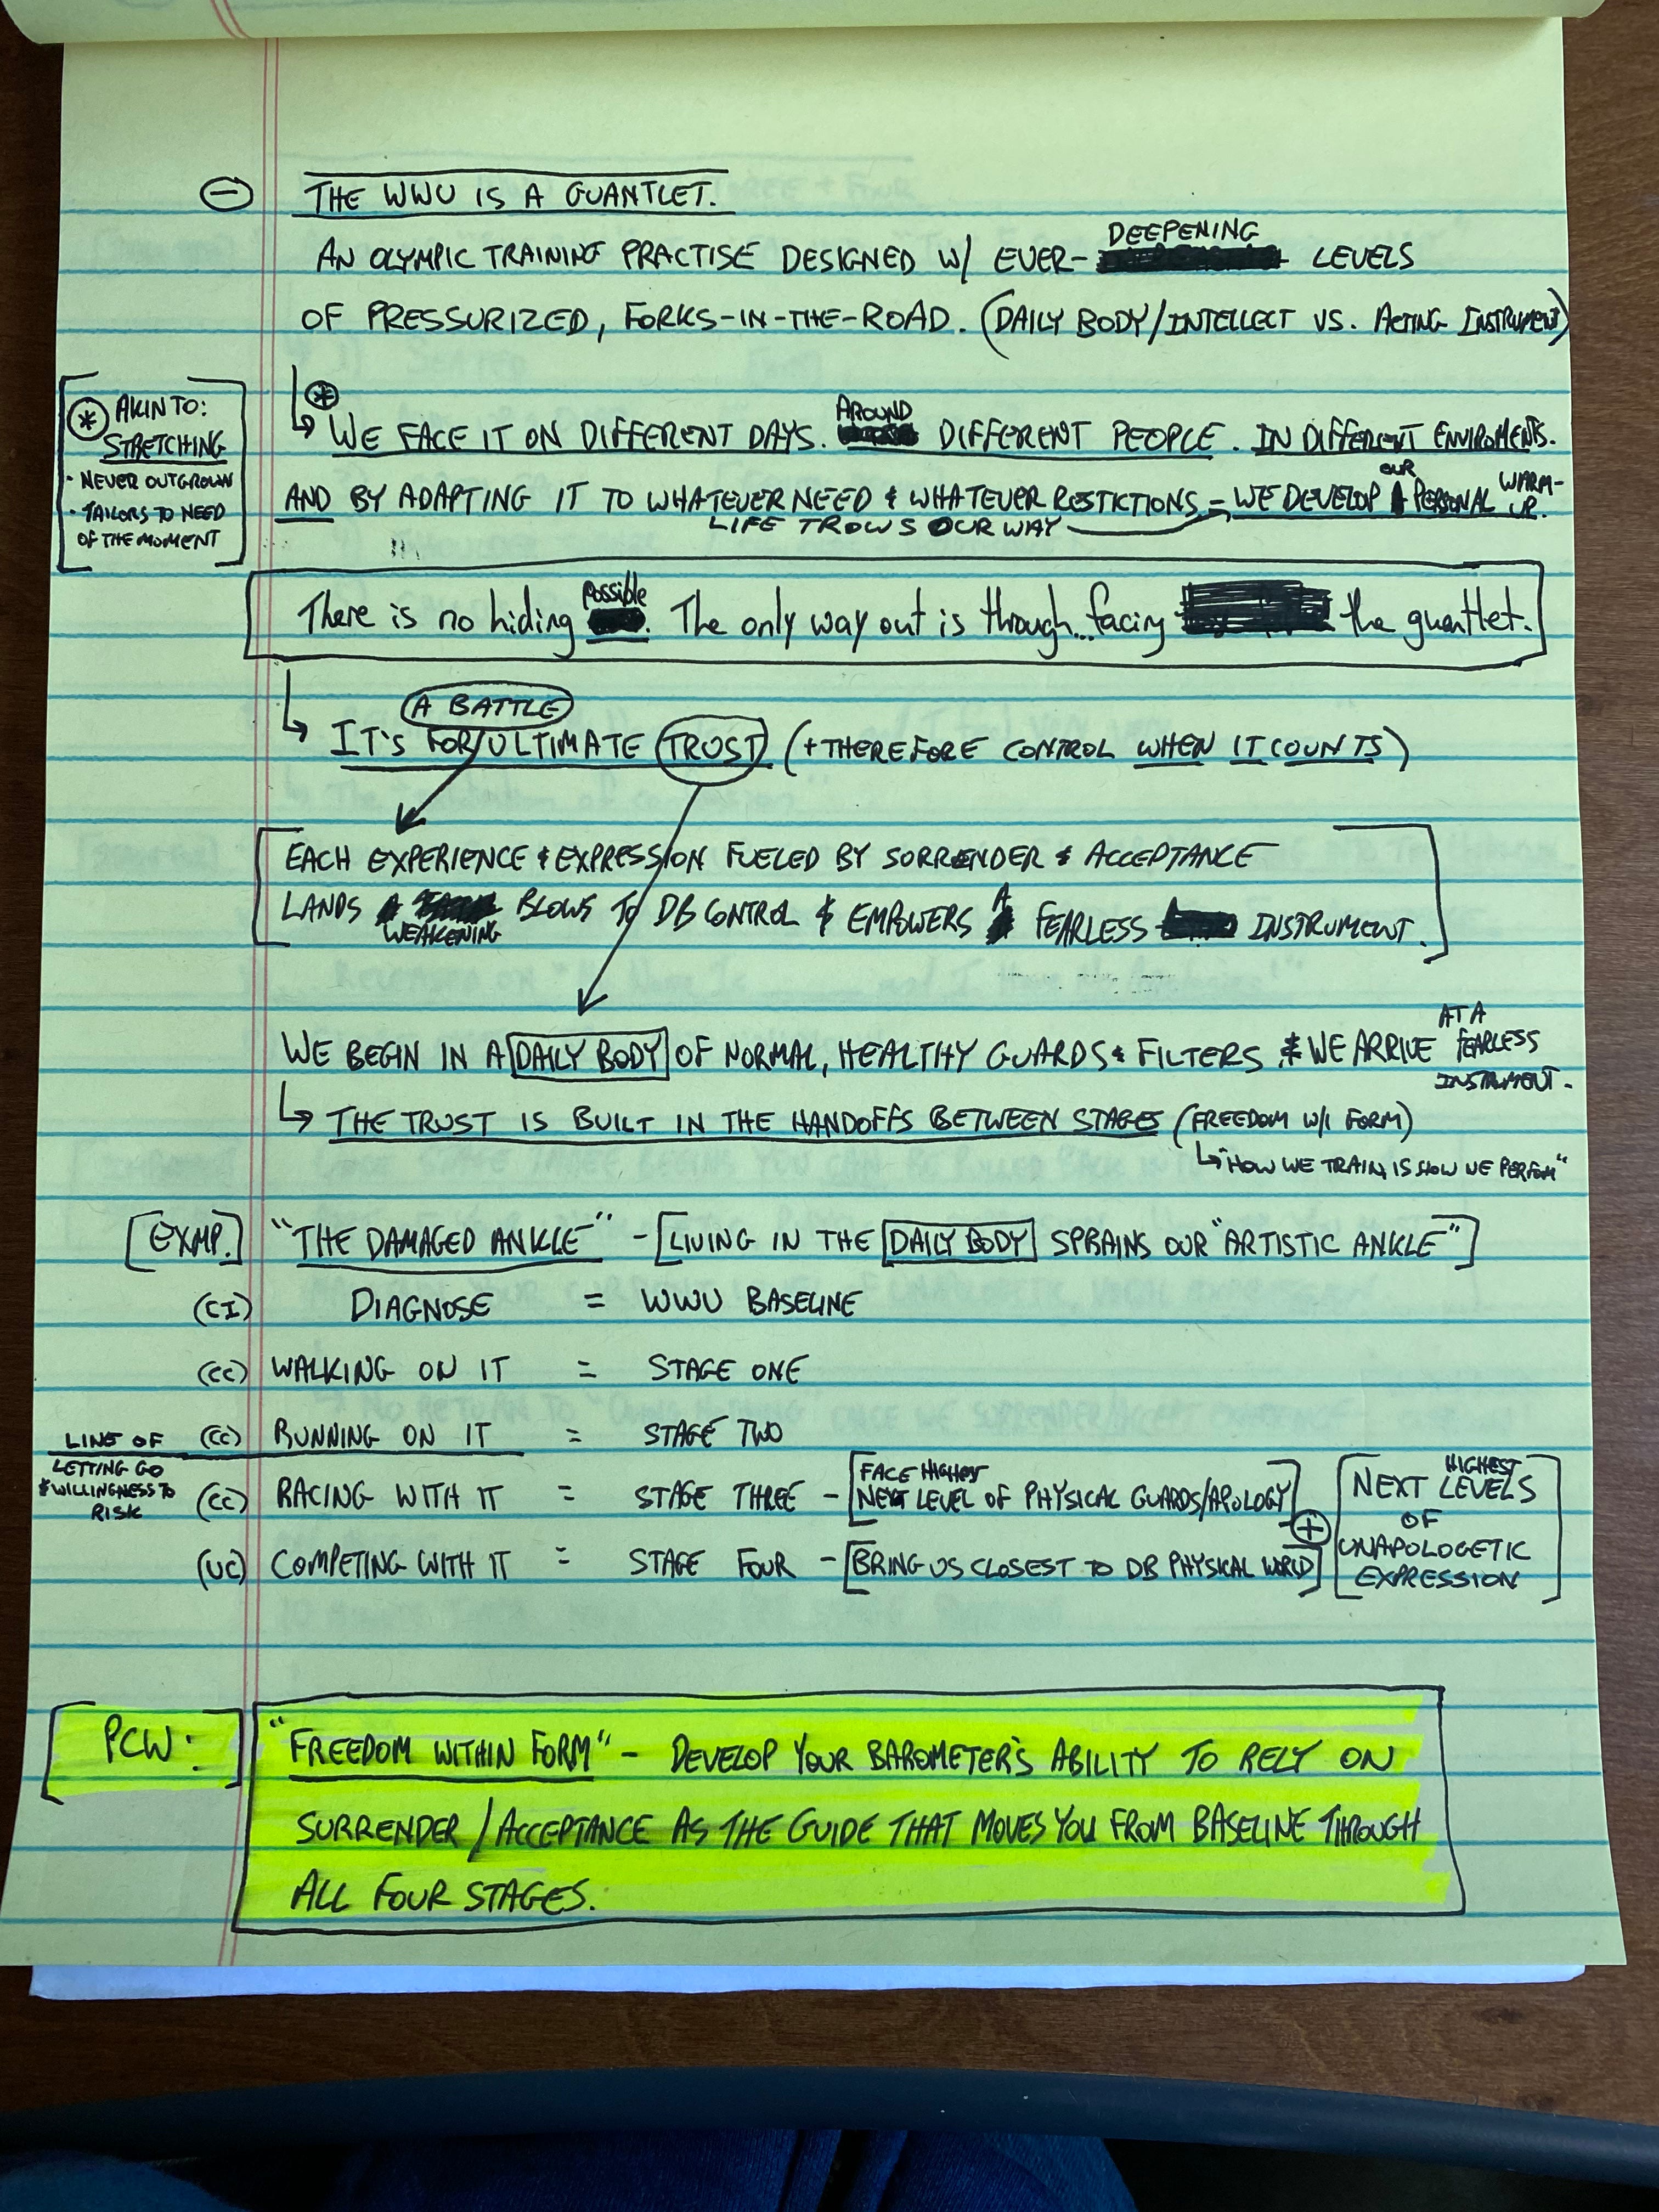 THE WWU IS A GUANTLET.
AN OLYMPIC TRAINING PRACTISE DESIGNED W/ EVER-DEEPENING LEVELS
OF PRESSURIZED, FORKS-IN-THE-ROAD. (DAILY BODY/INTELLECT VS. ACTING INSTRUMENT)
* AKIN TO:
STRETCHING
· NEVER OUTGROWN
· TAILORS TO NEED
OF THE MOMENT
* ↳ WE FACE IT ON DIFFERENT DAYS. AROUND DIFFERENT PEOPLE. IN DIFFERENT ENVIROMENTS.
AND BY ADAPTING IT TO WHATEVER NEED & WHATEVER RESTICTIONS
LIFE TROWS OUR WAY
- WE DEVELOP OUR PERSONAL WARM-UP.
There is no hiding possible. The only way out is through... facing the guantlet.
↳ IT'S A BATTLE FOR ULTIMATE TRUST (+ THEREFORE CONTROL WHEN IT COUNTS)
EACH EXPERIENCE & EXPRESSION FUELED BY SORRENDER & ACCEPTANCE
LANDS WEAKENING BLOWS TO DB CONTROL & EMPOWERS A FEARLESS INSTRUMENT.
WE BEGIN IN A DAILY BODY OF NORMAL, HEALTHY GUARDS & FILTERS & WE ARRIVE AT A FEARLESS INSTRUMENT.
↳ THE TRUST IS BUILT IN THE HANDOFFS BETWEEN STAGES (FREEDOM W/I FORM)
↳ "HOW WE TRAIN IS HOW WE PERFORM"
[EXMP.] "THE DAMAGED ANKLE" - [LIVING IN THE DAILY BODY SPRAINS OUR "ARTISTIC ANKLE"]
(CI) DIAGNOSE = WWU BASELINE
(CC) WALKING ON IT = STAGE ONE
(CC) RUNNING ON IT = STAGE TWO
LINE OF
LETTING GO
& WILLINGNESS TO
RISK
(CC) RACING WITH IT = STAGE THREE - [FACE HIGHEST NEXT LEVEL OF PHYSICAL GUARDS/APOLOGY]
(UC) COMPETING WITH IT = STAGE FOUR - [BRING US CLOSEST TO DB PHYSICAL WORLD]
+ [NEXT HIGHEST LEVELS
OF
UNAPOLOGETIC
EXPRESSION]
[PCW:] "FREEDOM WITHIN FORM" - DEVELOP YOUR BAROMETER'S ABILITY TO RELY ON
SURRENDER/ACCEPTANCE AS THE GUIDE THAT MOVES YOU FROM BASELINE THROUGH
ALL FOUR STAGES.